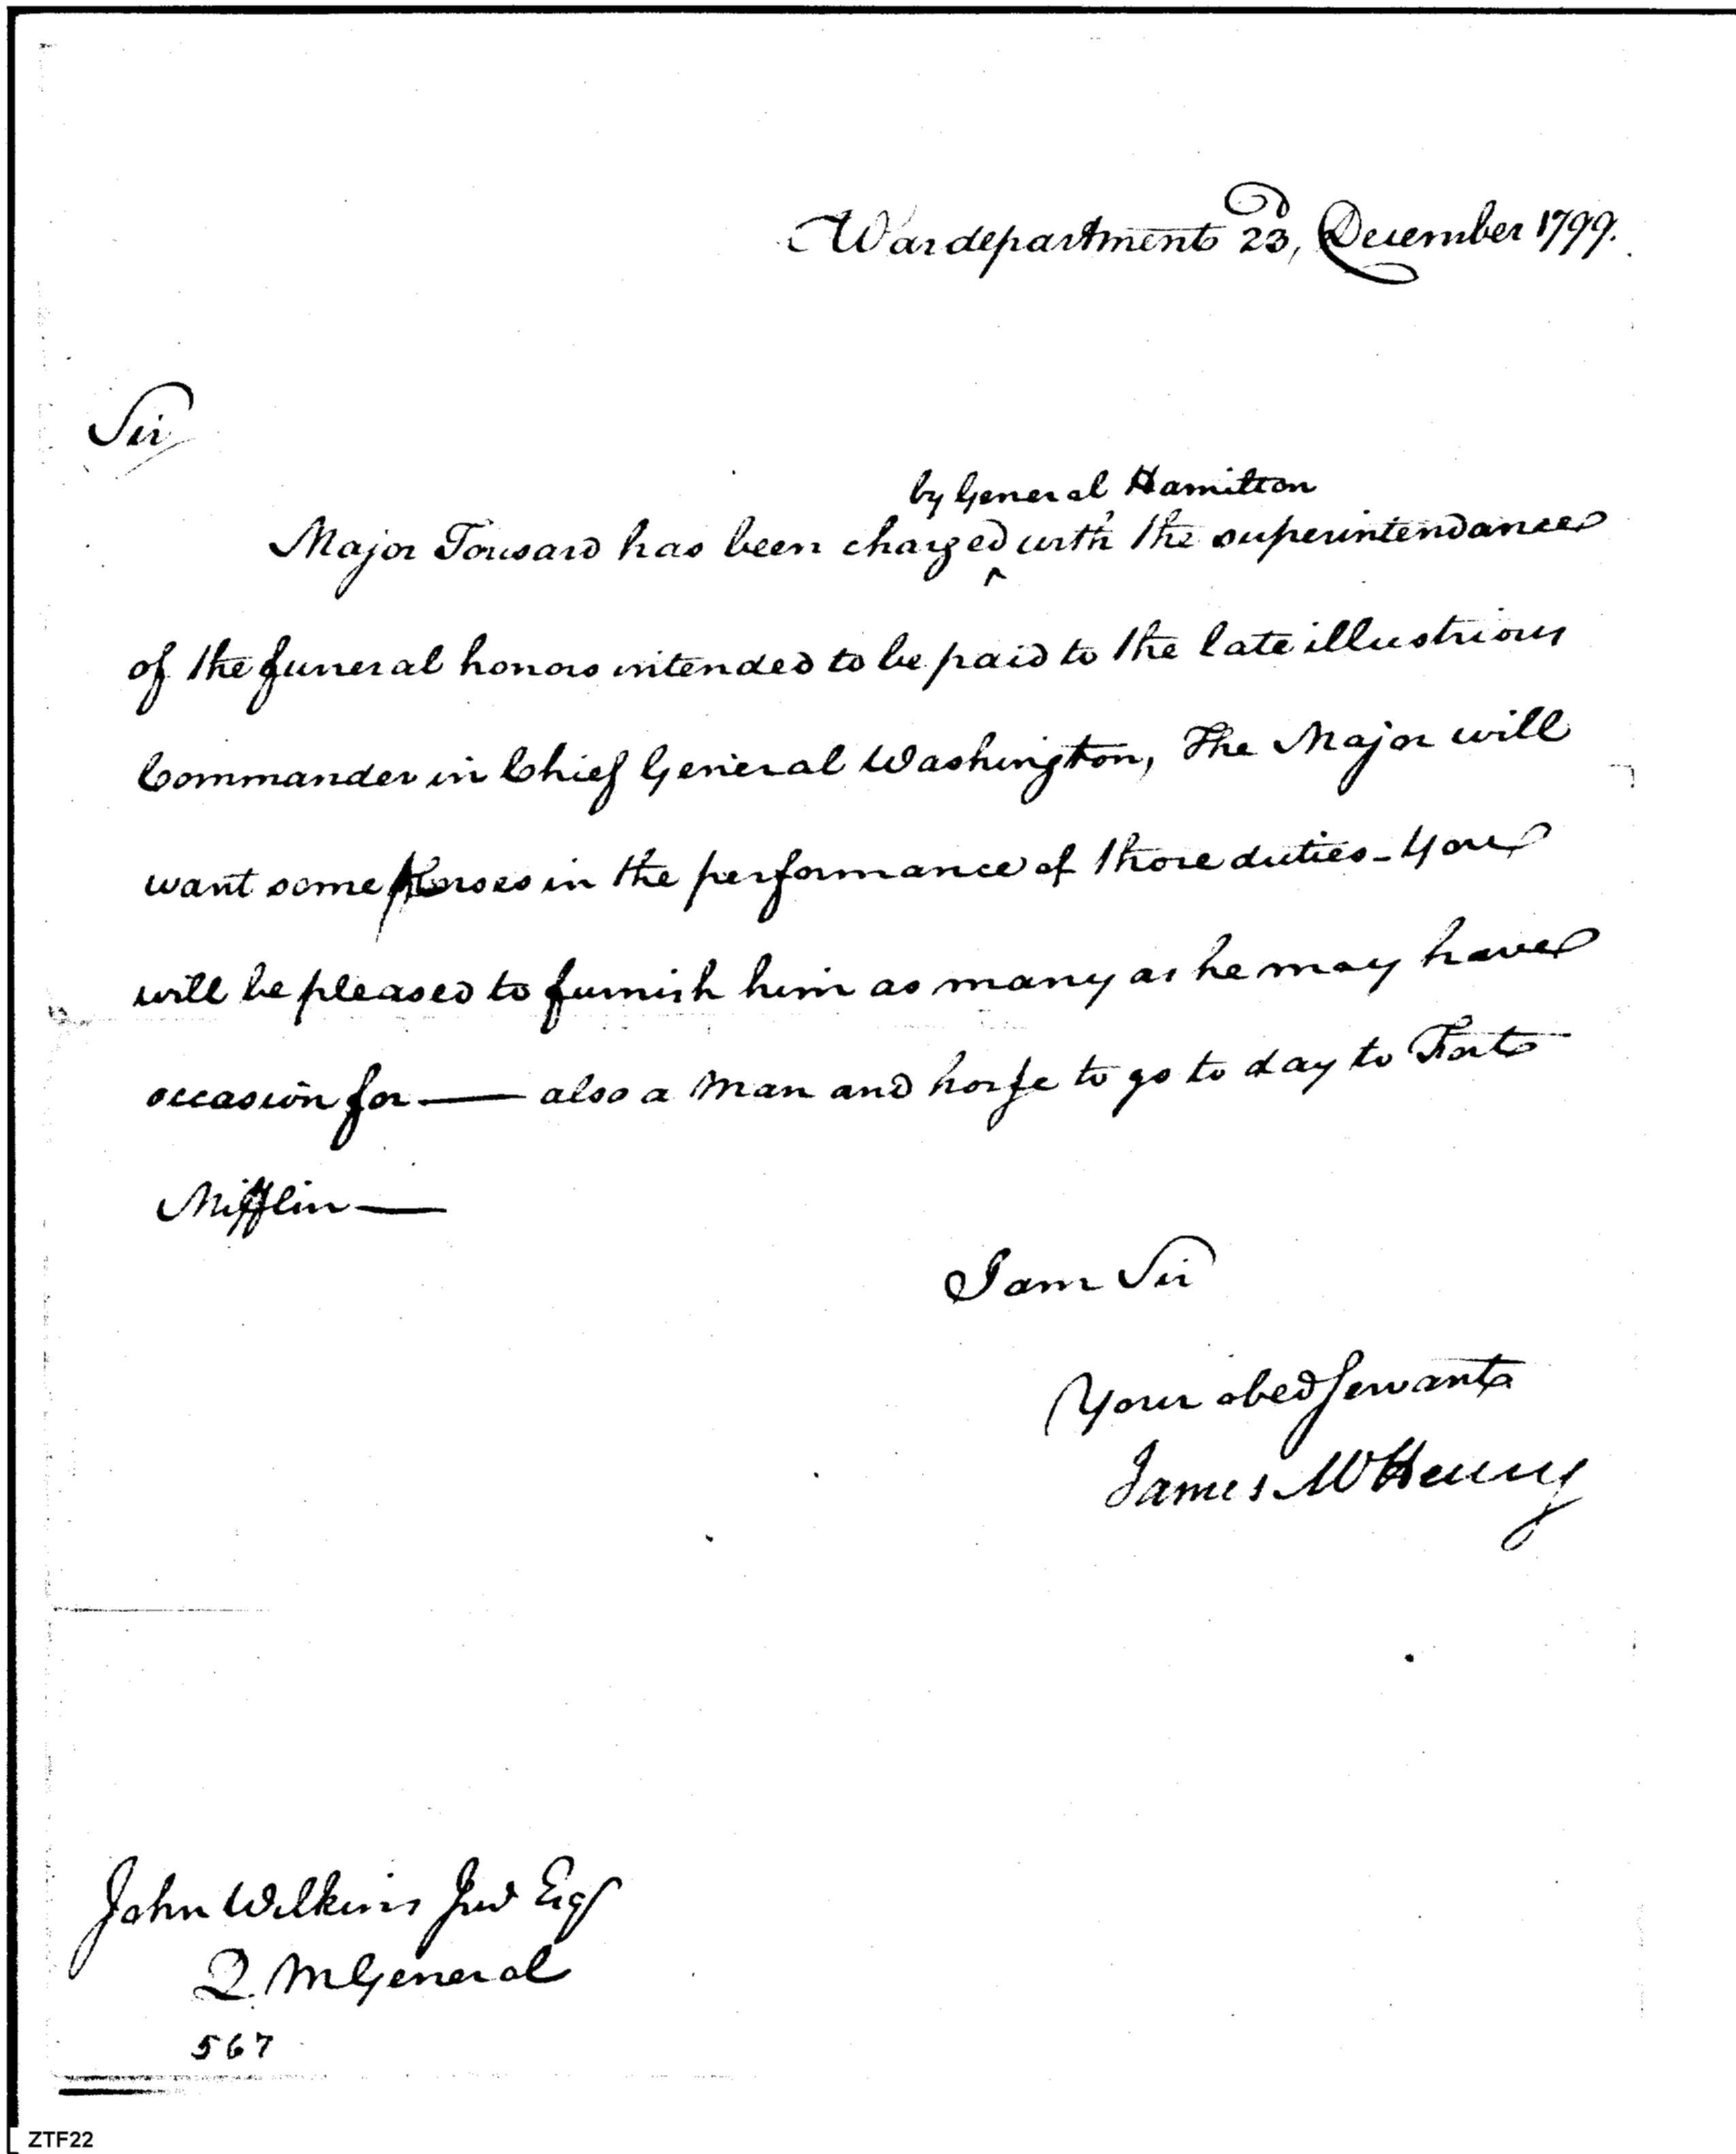 War department 23d, December 1799.
Sir
by General Hamilton
Major Tousard has been charged ^ with the superintendance
of the funeral honors intended to be paid to the late illustrious
Commander in Chief General Washington, The Major will
want some horses in the performance of those duties - You
will be pleased to furnish him as many as he may have
occasion for — also a man and horse to go to day to Fort
Mifflin —
I am Sir
Your obed Servant
James McHenry
John Wilkins Junr Esqr
Q. M General
567
ZTF22